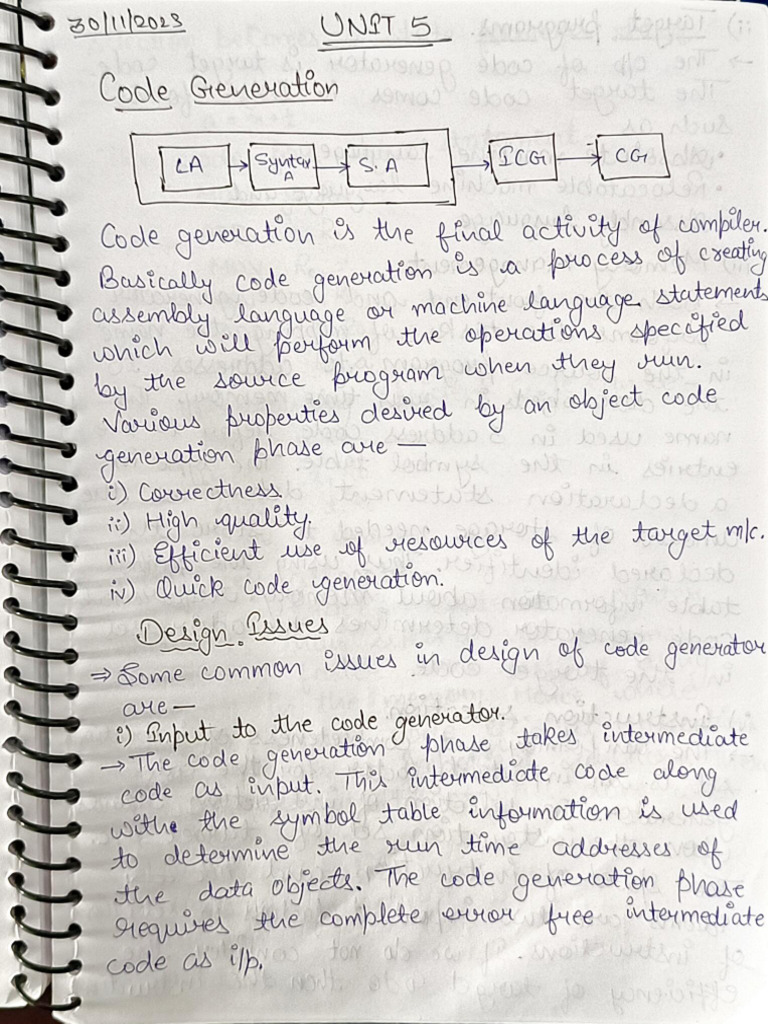 30/11/2023 UNIT 5
Code Generation
LA → Syntax A → S.A → ICG → CG
Code generation is the final activity of compiler.
Basically code generation is a process of creating
assembly language or machine language statements
which will perform the operations specified
by the source program when they run.
Various properties desired by an object code
generation phase are —
i) Correctness.
ii) High quality.
iii) Efficient use of resources of the target m/c.
iv) Quick code generation.
Design Issues
⇒ Some common issues in design of code generator
are —
i) Input to the code generator.
→ The code generation phase takes intermediate
code as input. This intermediate code along
with the symbol table information is used
to determine the run time addresses of
the data objects. The code generation phase
requires the complete error free intermediate
code as i/p.